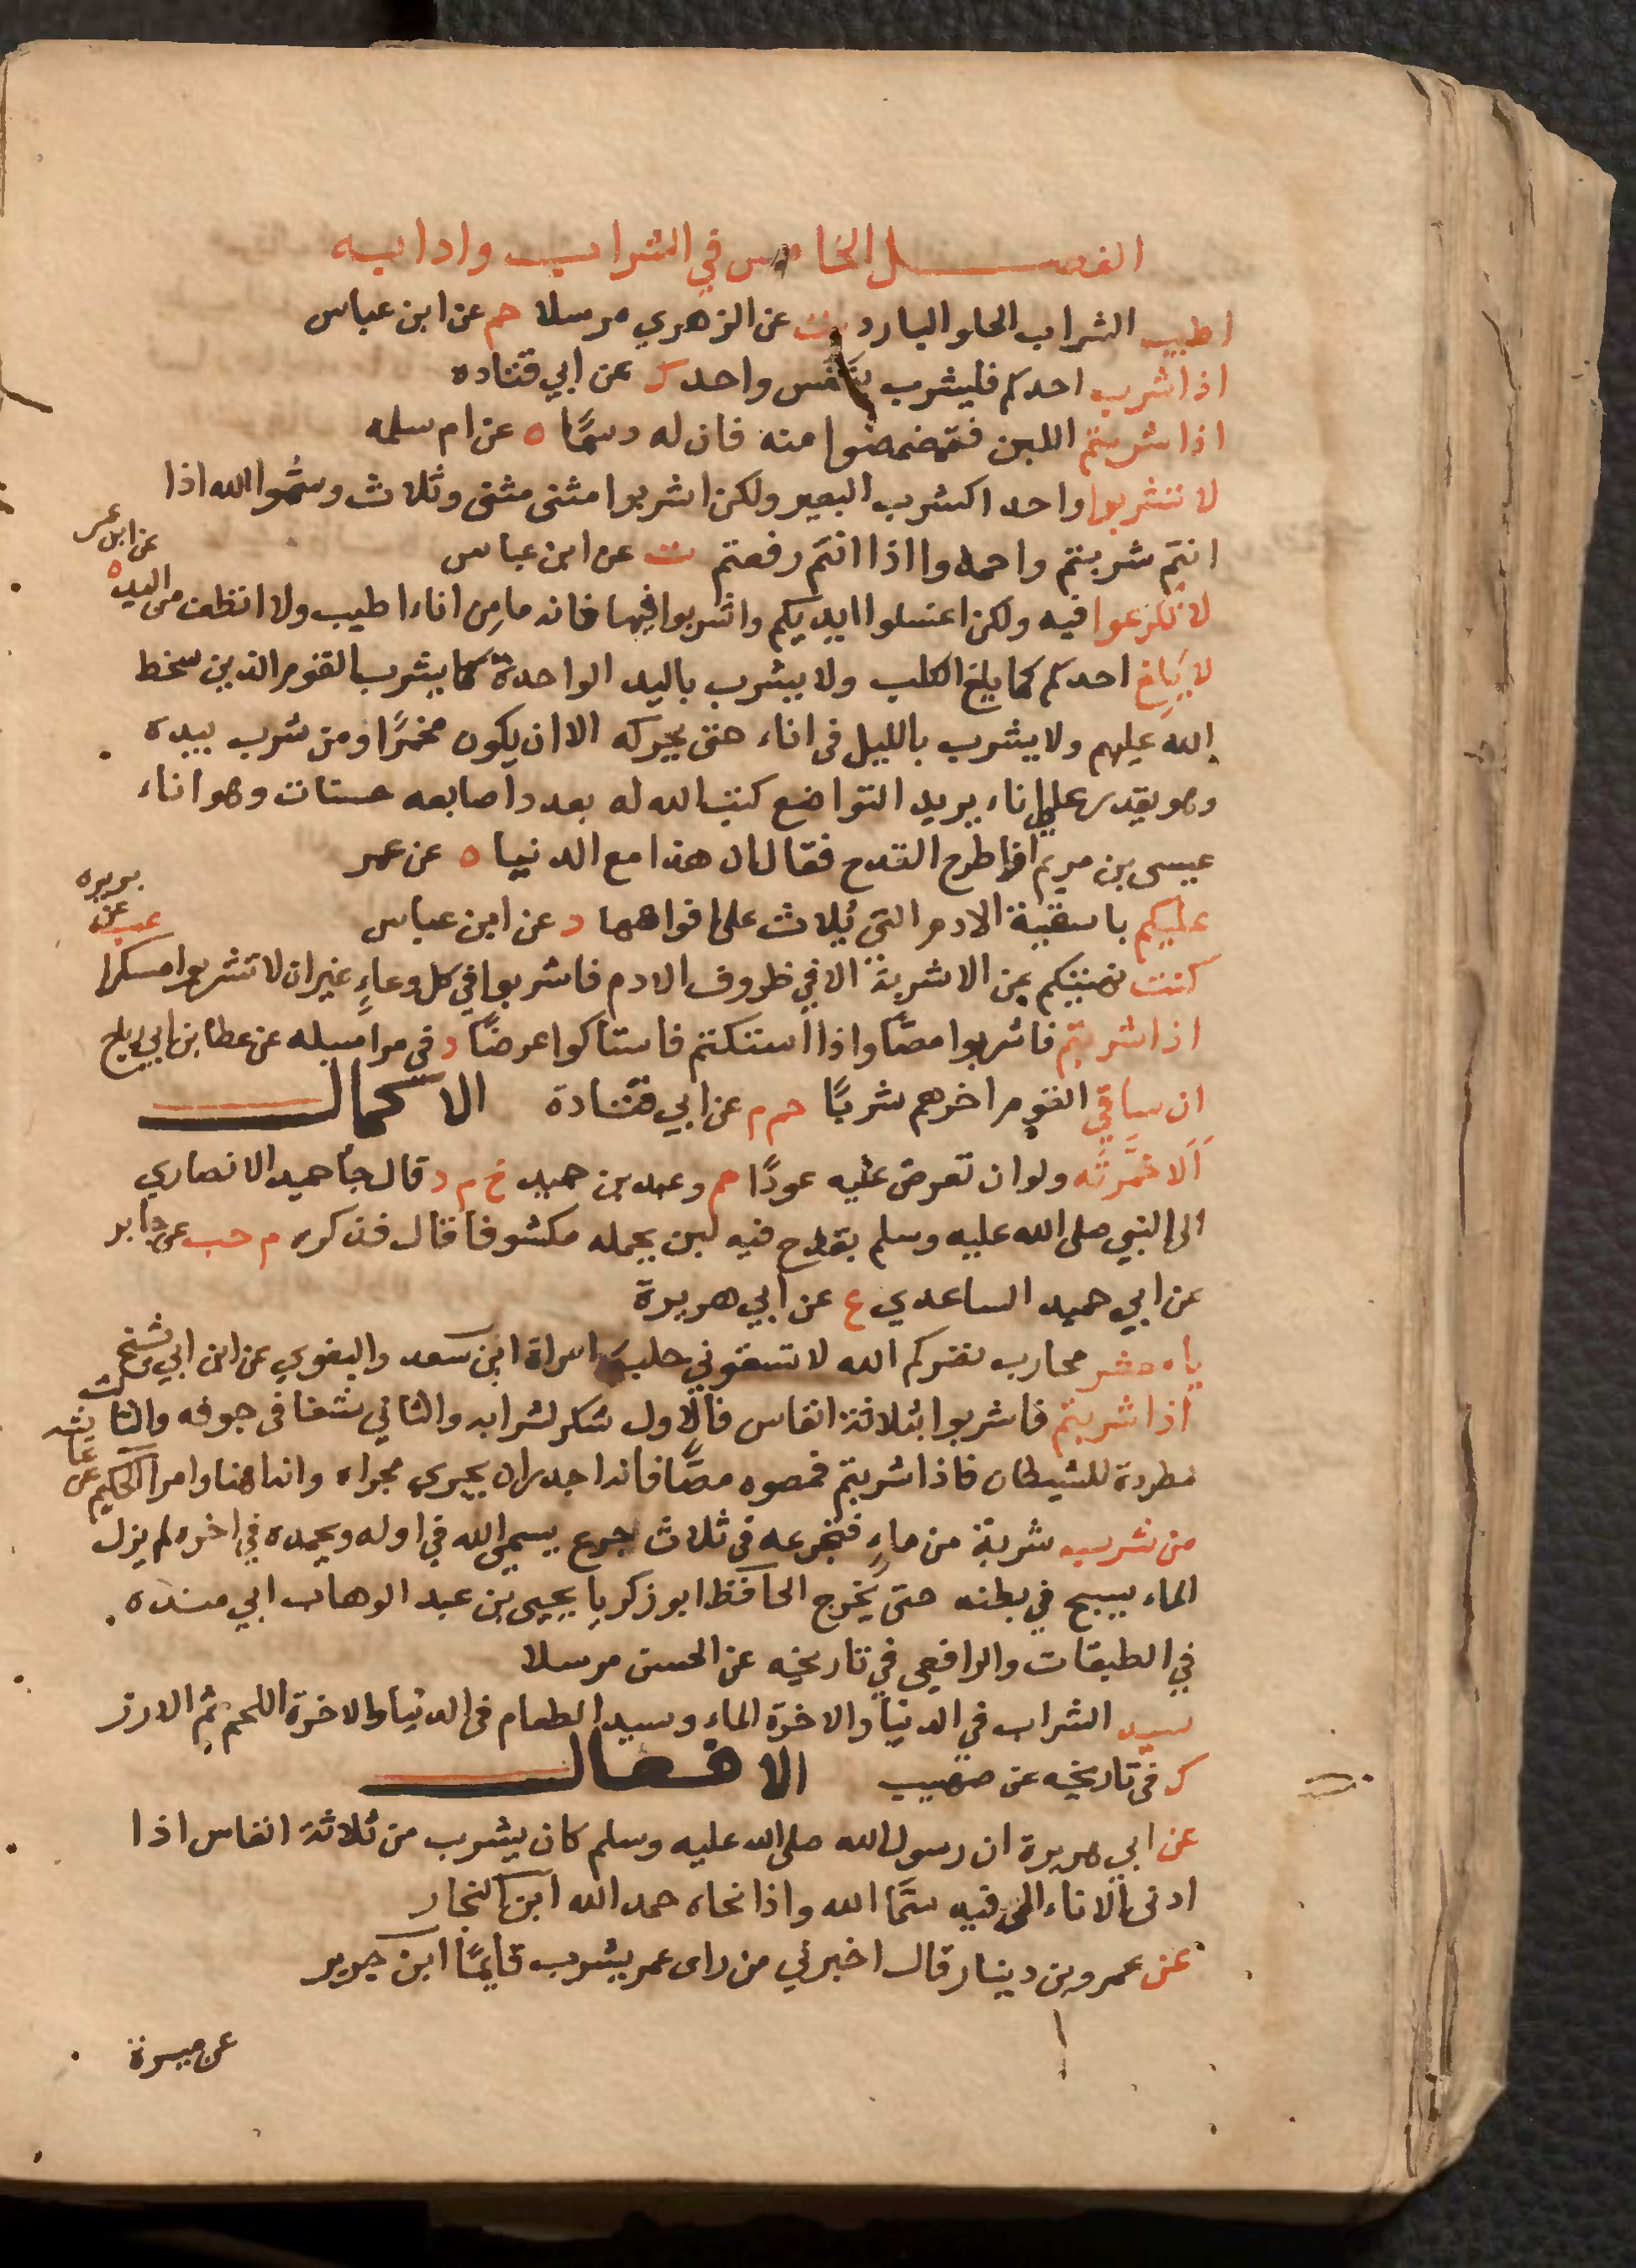 الفصل الخامس في الشراب وادابه
اطيب الشراب الحلو البارد ت عن الزهري مرسلا حم عن ابن عباس
اذا شرب احدكم فليشرب بنفس واحد ك عن ابي قتاده
اذا شربتم اللبن فتمضمضوا منه فان له دسمًا ه عن ام سلمه
لا تشربوا واحدا كشرب البعير ولكن اشربوا مثنى مثنى وثلاث وسمُّوا الله اذا
انتم شربتم واحمدوا اذا انتم رفعتم ت عن ابن عباس
لا تكرعوا فيه ولكن اغسلوا ايديكم واشربوا فيها فانه ما مِن اناء اطيب ولا انظف من اليد ه عن ابن عمر
لا يَلِغ احدكم كما يلغ الكلب ولا يشرب باليد الواحدة كما يشرب القوم الذين سخط
الله عليهم ولا يشرب بالليل في اناء حتى يحركه الا ان يكون مخمرًا ومن شرب بيده
وهو يقدر على اناء يريد التواضع كتب الله له بعدد اصابعه حسنات وهو اناء
عيسى بن مريم اذا طرح القدح فقال ان هذا مع الدنيا ه عن عمر
عليكم باسقية الادم التي يُلاث على افواهها د عن ابن عباس
كنت نهيتكم عن الاشربة الا في ظروف الادم فاشربوا في كل وعاءٍ غير ان لا تشربوا مسكرا عن بريره
اذا شربتم فاشربوا مصًّا واذا استكتم فاستاكوا عرضًا د في مراسيله عن عطا بن ابي رباح
ان ساقي القوم اخرهم شربًا حم م عن ابي قتادة الاكمال
اَلا خمّرته ولو ان تعرض عليه عودًا حم وعبد بن حميد خ م د قال جا حميد الانصاري
الى النبي صلى الله عليه وسلم بقدح فيه لبن يحمله مكشوفا قال فذكره م حب عن جابر
عن ابي حميد الساعدي ع عن ابي هريرة
يا معشر محارب نضركم الله لا تسقوني حلب امراة ابن سعد والبغوي عن ابن ابي شيخ
اذا شربتم فاشربوا بثلاثة انفاس فالاول شكر لشرابه والثاني شفا في جوفه والثالث
مطردة للشيطان فاذا شربتم فمصوه مصًّا فانه اجدر ان يجري مجراه وانه اهنا وامرا الحكيم عن عائشه
من شرب شربة من ماءٍ فتجرعه في ثلاث جرع يسمي الله في اوله ويحمده في اخره لم يزل
الماء يسبح في بطنه حتى يخرج الحافظ ابو زكريا يحيى بن عبد الوهاب ابي منده
في الطبقات والرافعي في تاريخه عن الحسن مرسلا
سيد الشراب في الدنيا والاخرة الماء وسيد الطعام في الدنيا والاخرة اللحم ثم الارز
ك في تاريخه عن صهيب الافعال
عن ابي هريرة ان رسول الله صلى الله عليه وسلم كان يشرب من ثلاثة انفاس اذا
ادنى الاناء الى فيه سمَّا الله واذا نحاه حمد الله ابن النجار
عن عمرو بن دينار قال اخبرني من راى عمر يشرب قايمًا ابن جرير
عن ميسرة